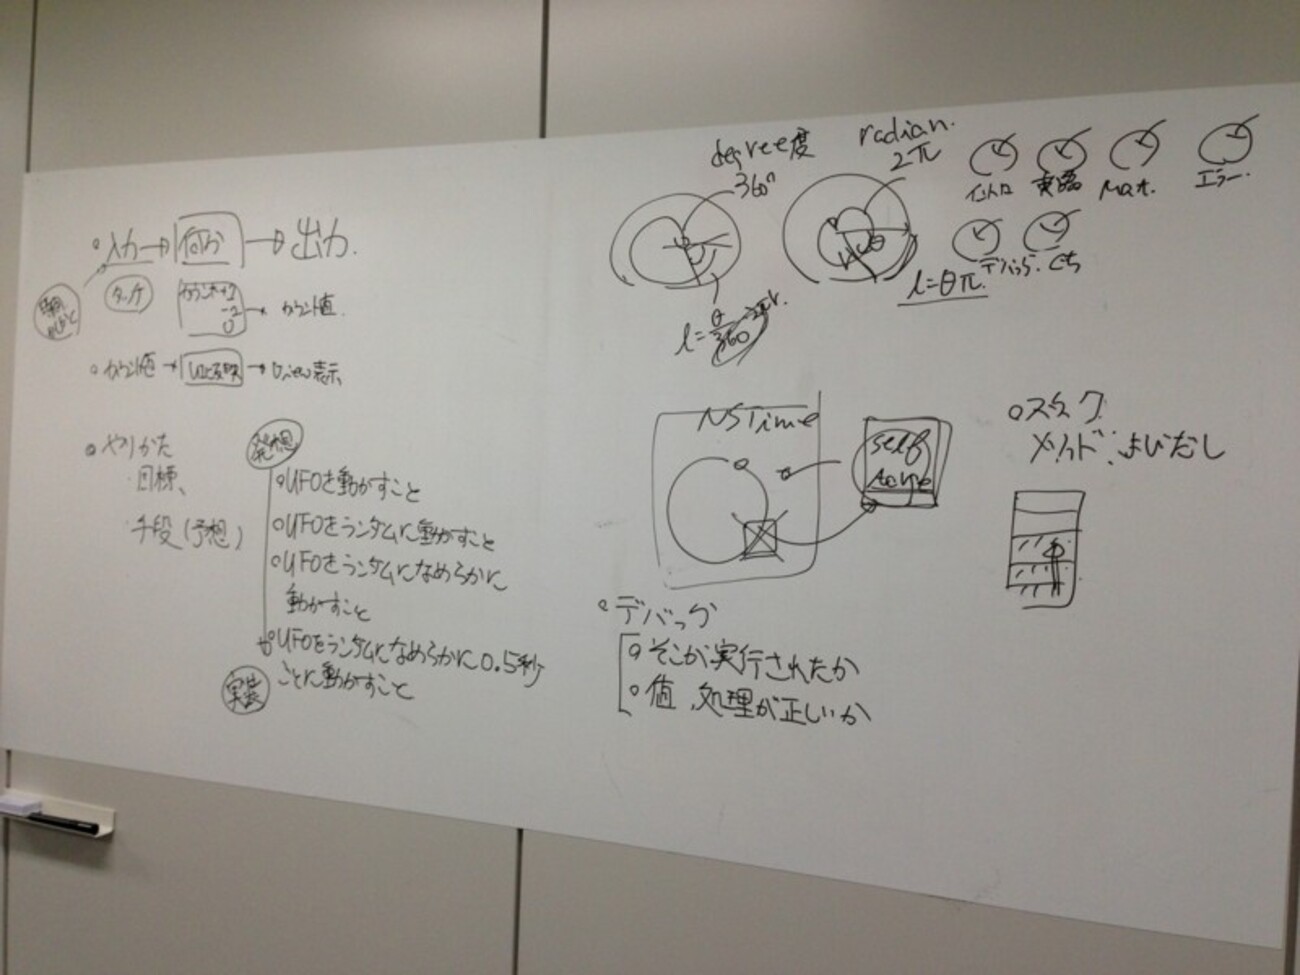 入力→何か→出力.
タッチ
カウント+1
-1
0
→カウント値
カウント値→ →View表示
やりかた
目標、
手段(予想)
発想
UFOを動かすこと
UFOをランダムに動かすこと
UFOをランダムになめらかに
動かすこと
UFOをランダムになめらかに0.5秒
ごとに動かすこと
実装
degree度
360°
radian.
2π
イントロ
Mat.
エラー.
デバッグ.
l=θ/360 2πr.
l=θπ.
NSTime
self
デバッグ
そこが実行されたか
値、処理が正しいか
スタック
メソッド:よびだし